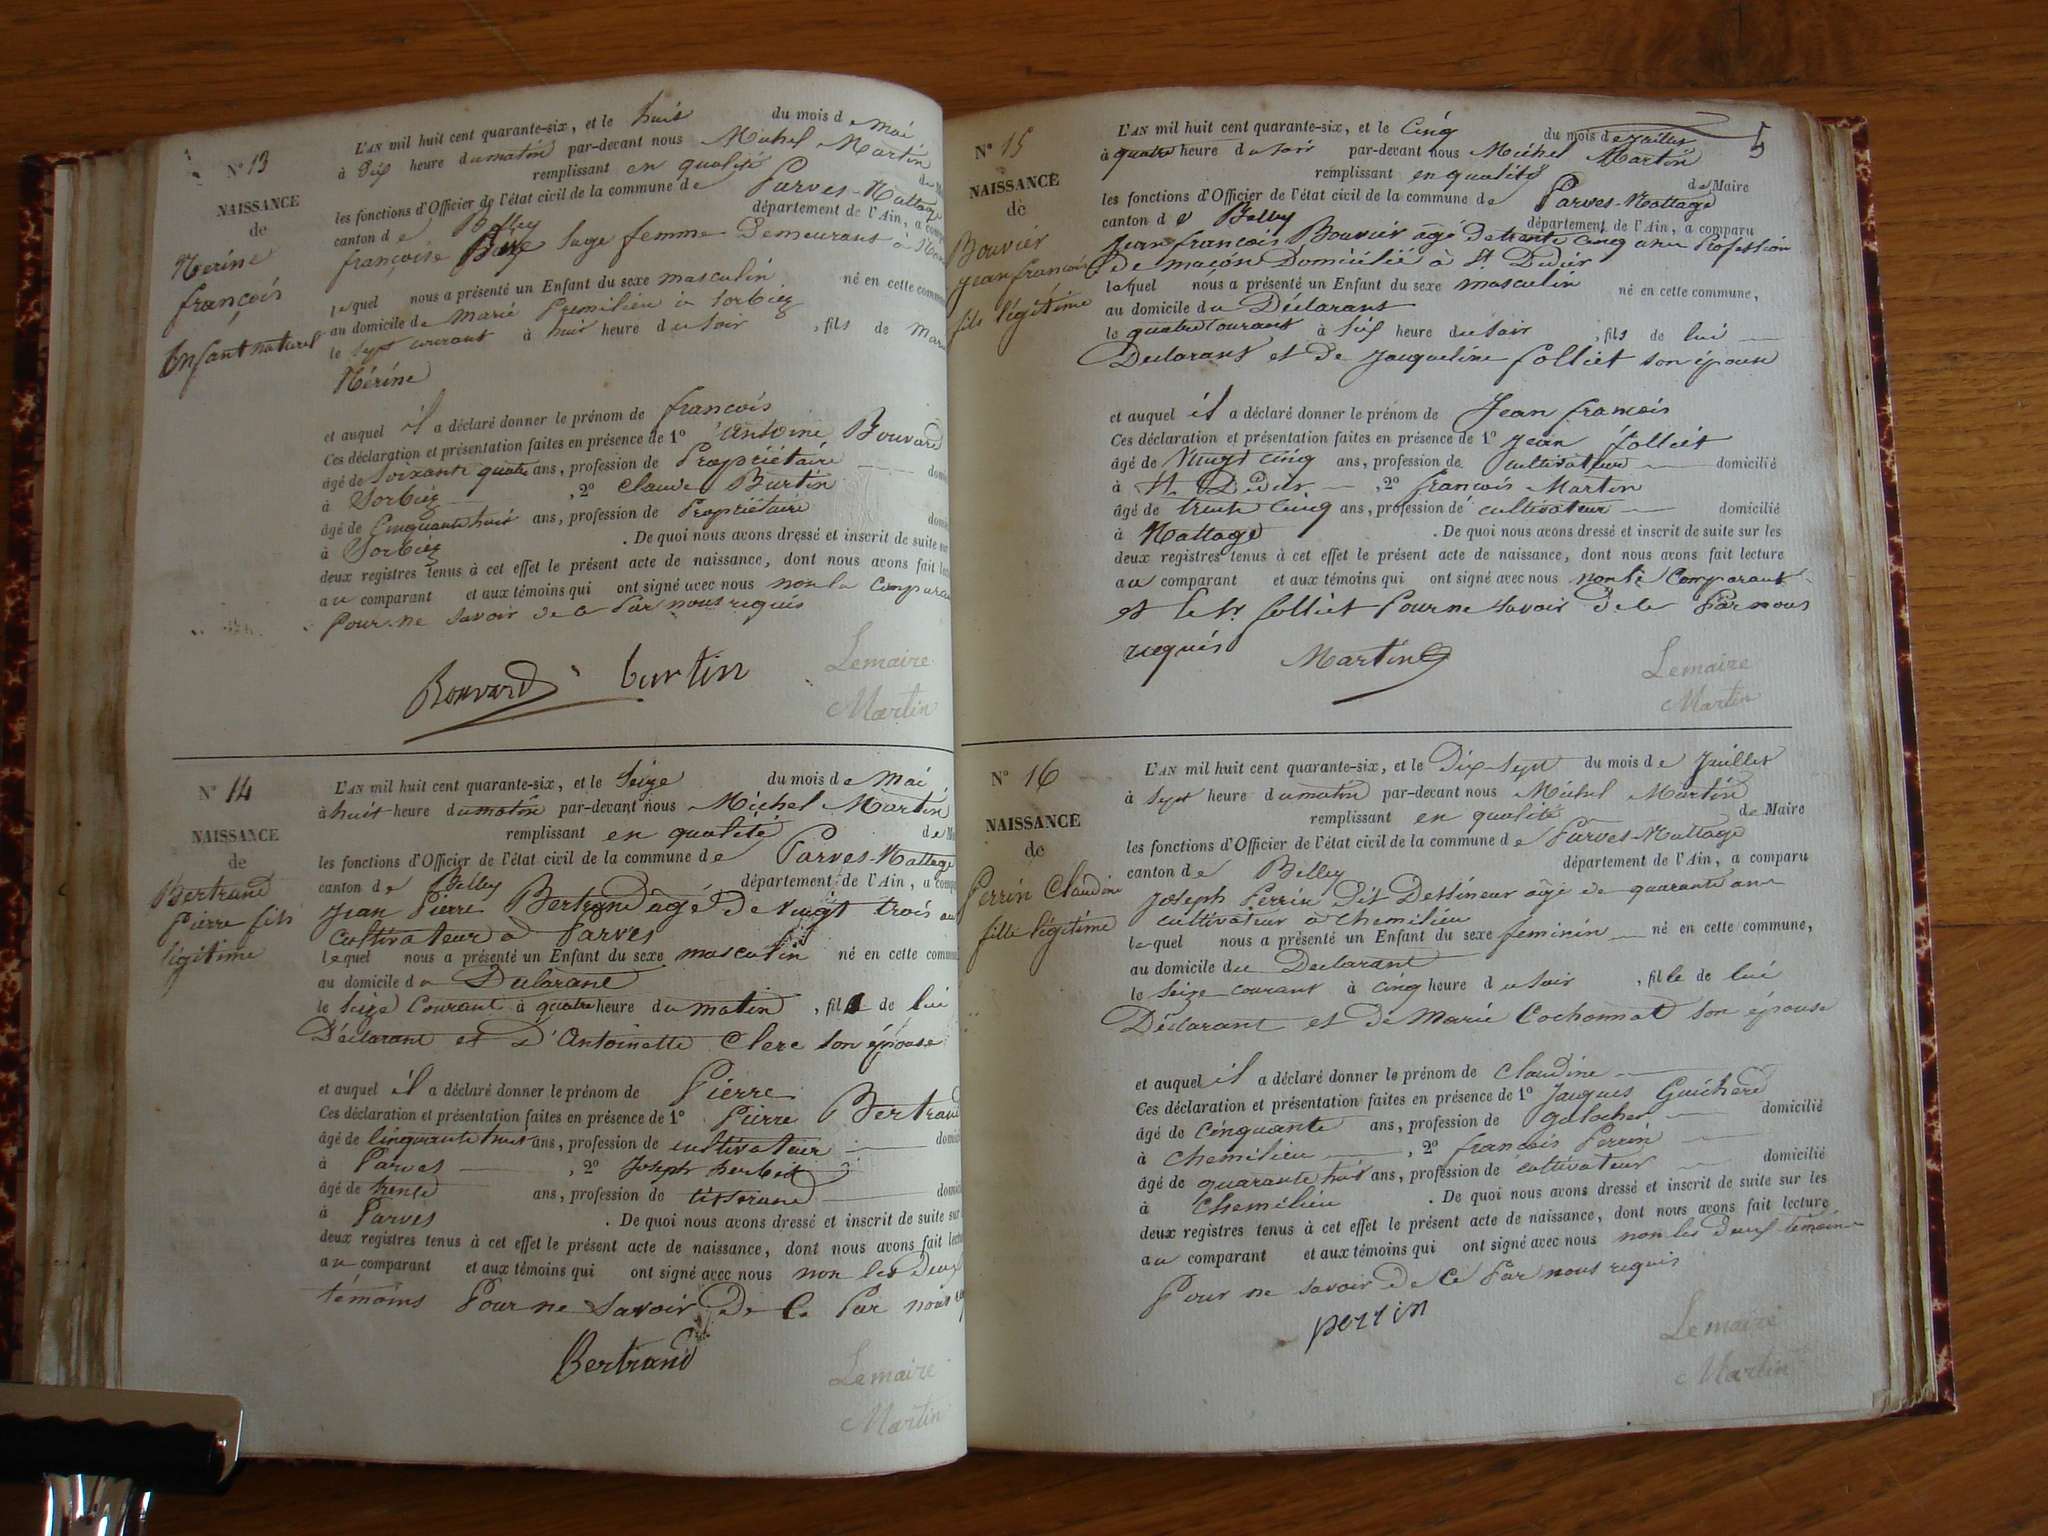 N° 13
NAISSANCE
de
Nérine
françois
Enfant naturel
L'AN mil huit cent quarante-six, et le huit du mois de Mai
à Dix heure du matin par-devant nous Michel Martin
remplissant en qualité de
les fonctions d'Officier de l'état civil de la commune de Parves-Nattage
canton de Belley département de l'Ain, a
françoise sage femme Demeurant à
lequel nous a présenté un Enfant du sexe masculin né en cette
au domicile de Marie à Sorbiez
le sept courant à huit heure du soir, fils de
Nérine
et auquel il a déclaré donner le prénom de françois
Ces déclaration et présentation faites en présence de 1° Antoine Bouvard
âgé de soixante quatre ans, profession de Propriétaire
à Sorbiez, 2° Claude Burtin
âgé de Cinquante huit ans, profession de Propriétaire
à Sorbiez. De quoi nous avons dressé et inscrit de suite sur
deux registres tenus à cet effet le présent acte de naissance, dont nous avons fait
au comparant et aux témoins qui ont signé avec nous non la
Pour ne savoir de ce Par nous requis
Bouvard burtin Lemaire
Martin
N° 14
NAISSANCE
de
Bertrand
Pierre fils
légitime
L'AN mil huit cent quarante-six, et le Seize du mois de Mai
à huit heure du matin par-devant nous Michel Martin
remplissant en qualité de
les fonctions d'Officier de l'état civil de la commune de Parves-Nattage
canton de Belley département de l'Ain, a
Jean Pierre Bertrand âgé de vingt trois ans
Cultivateur à Parves
lequel nous a présenté un Enfant du sexe masculin né en cette
au domicile du Déclarant
le Seize Courant à quatre heure du matin, fils de lui
Déclarant et D'Antoinette Clerc son épouse
et auquel il a déclaré donner le prénom de Pierre
Ces déclaration et présentation faites en présence de 1° Pierre Bertrand
âgé de Cinquante huit ans, profession de cultivateur
à Parves, 2° Joseph
âgé de trente ans, profession de tisserand
à Parves. De quoi nous avons dressé et inscrit de suite sur
deux registres tenus à cet effet le présent acte de naissance, dont nous avons fait
au comparant et aux témoins qui ont signé avec nous non les Deux
témoins Pour ne savoir De Ce Par nous
Bertrand Lemaire
Martin
5
N° 15
NAISSANCE
de
Bouvier
Jean françois
fils légitime
L'AN mil huit cent quarante-six, et le Cinq du mois de Juillet
à quatre heure du soir par-devant nous Michel Martin
remplissant en qualité de Maire
les fonctions d'Officier de l'état civil de la commune de Parves-Nattage
canton de Belley département de l'Ain, a comparu
Jean françois Bouvier âgé de trente cinq ans Profession
de maçon Domicilié à St. Didier
lequel nous a présenté un Enfant du sexe masculin né en cette commune,
au domicile du Déclarant
le quatre courant à six heure du soir, fils de lui
Déclarant et de Jacqueline folliet son épouse
et auquel il a déclaré donner le prénom de Jean francois
Ces déclaration et présentation faites en présence de 1° Jean folliet
âgé de Vingt cinq ans, profession de cultivateur domicilié
à St. Didier, 2° francois Martin
âgé de trente Cinq ans, profession de cultivateur domicilié
à Nattage. De quoi nous avons dressé et inscrit de suite sur les
deux registres tenus à cet effet le présent acte de naissance, dont nous avons fait lecture
au comparant et aux témoins qui ont signé avec nous non le Comparant
et le Sr. folliet Pour ne savoir de ce Par nous
requis Martin Lemaire
Martin
N° 16
NAISSANCE
de
Perrin Claudine
fille légitime
L'AN mil huit cent quarante-six, et le Dix-sept du mois de Juillet
à sept heure du matin par-devant nous Michel Martin
remplissant en qualité de Maire
les fonctions d'Officier de l'état civil de la commune de Parves-Nattage
canton de Belley département de l'Ain, a comparu
Joseph Perrin Dit Dessineur âgé de quarante ans
cultivateur à Chemilieu
lequel nous a présenté un Enfant du sexe feminin né en cette commune,
au domicile du Declarant
le Seize courant à cinq heure du soir, fille de lui
Déclarant et de Marie Cochonnat son épouse
et auquel il a déclaré donner le prénom de Claudine
Ces déclaration et présentation faites en présence de 1° Jacques Guicherd
âgé de Cinquante ans, profession de galocher domicilié
à Chemilieu, 2° francois Perrin
âgé de quarante huit ans, profession de cultivateur domicilié
à Chemilieu. De quoi nous avons dressé et inscrit de suite sur les
deux registres tenus à cet effet le présent acte de naissance, dont nous avons fait lecture
au comparant et aux témoins qui ont signé avec nous non les deux témoins
Pour ne savoir de Ce Par nous requis
perrin Lemaire
Martin